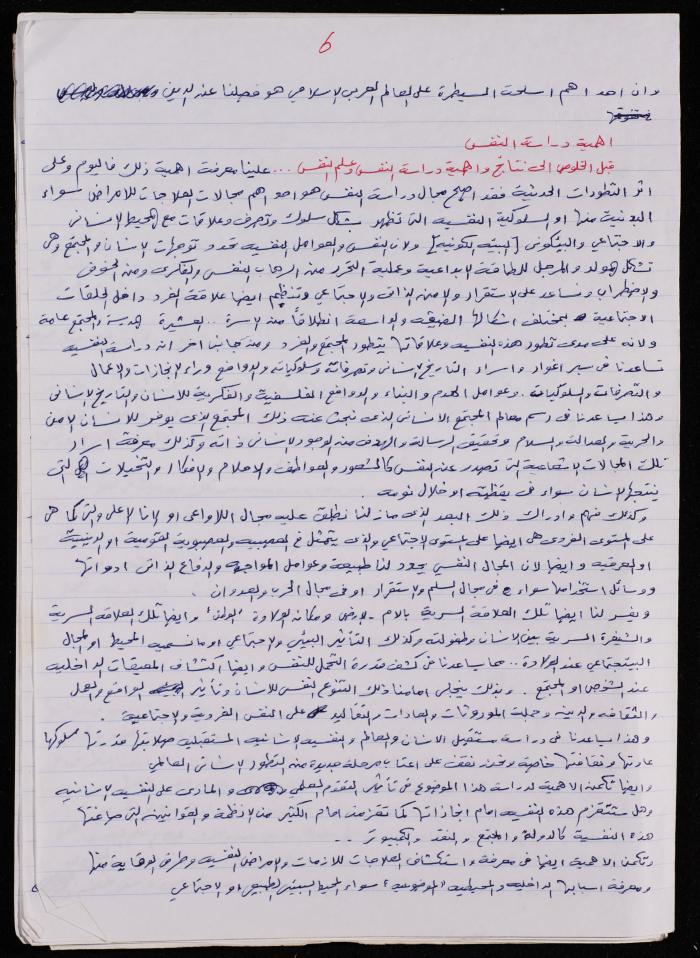 6
وان احد اهم اسلحت السيطرة على العالم العربي الاسلامي هو فصلنا عن الدين
اهمية دراسة النفس
قبل الخلوص الى نتائج واهمية دراسة النفس وعلم النفس ... علينا معرفة اهمية ذلك فاليوم وعلى
اثر التطورات الحديثة فقد اصبح مجال دراسة النفس هو احد اهم مجالات العلاجات للامراض سواء
البدنية منها او السلوكية النفسية التي تظهر بشكل سلوك وتصرف وعلاقات مع المحيط الانساني
والاجتماعي والبيئكوني [البيئه الكونية] ولان النفس والعوامل النفسيه تحدد توجهات الانسان والمجتمع وهي
تشكل المولد والمرجل للطاقة الابداعية وعملية التحرر من الرهاب النفسي والفكري ومن الخوف
والاضطراب وتساعد على الاستقرار والامن الذاتي والاجتماعي وتنظم ايضا علاقة الفرد داخل الحلقات
الاجتماعية بمختلف اشكالها الضيقه والواسعة انطلاقاً من الاسرة .. العشيرة المدرسة والمجتمع عامة
ولانه على مدى تطور هذه النفسيه وعلاقاتها يتطور المجتمع والفرد ومن جانب اخر ان دراسة النفسيه
تساعدنا في سبر اغوار واسرار التاريخ الانساني وتصرفاته وسلوكياته والدوافع وراء الانجازات والاعمال
والتصرفات والسلوكيات. وعوامل الهدم والبناء والدوافع الفلسفية والفكرية للانسان والتاريخ الانساني
وهذا سيساعدنا في رسم معالم المجتمع الانساني الذي نبحث عنه ذلك المجتمع الذي يوفر للانسان الامن
والحرية والعدالة والسلام وتحقيق الرسالة والهدف من الوجود الانساني ذاته وكذلك معرفة اسرار
تلك المجالات الاشعاعية التي تصدر عن النفس كالشعور والعواطف والاحلام والافكار والتخيلات التي
ينتجها الانسان سواء في يقظته او خلال نومه .
وكذلك فهم وادراك ذلك البعد الذي مازلنا نطلق عليه مجال اللاواعي او الانا الاعلى والتي كما هي
على المستوى الفردي هي ايضا على المستوى الاجتماعي والذي يتمثل في العصبيه والعصبوية القومية او الدينية
او العرقيه وايضا لان المجال النفسي يحدد لنا طبيعة وعوامل المواجهه والدفاع الذاتي ادواتها
ووسائل استخدامها سواء في مجال السلم والاستقرار او في مجال الحرب والعدوان .
ويفسر لنا ايضا تلك العلاقة السرية بالام - الارض ومكان الولادة "الوطن" وايضا تلك العلاقه السرية
والشيفرة السرية بين الانسان وطفولته وكذلك التأثير البيئي والاجتماعي او ما نسميه المحيط او المجال
البيئجتماعي عند الولادة .. مما يساعدنا في كشف قدرة التحمل للنفس وايضا اكتشاف المعيقات الداخليه
عند الشخص او المجتمع . وبذلك يتجلى امامنا ذلك التنوع النفسي للانسان وتأثير الواقع والعمل
والثقافه والدين وجملة الموروثات والعادات والتقاليد على النفس الفردية والاجتماعية .
وهذا سيساعدنا في دراسة مستقبل الانسان والعالم والنفسيه الانسانية المستقبليه صلابتها قدرتها سلوكها
عادتها وثقافتها خاصة ونحن نقف على اعتاب مرحلة جديدة من التطور الانساني العالمي
وايضا تكمن الاهمية لدراسة هذا الموضوع في تأثير التقدم العلمي والمادي على النفسيه الانسانيه
وهل ستتقزم هذه النفسيه امام انجازاتها كما تقزمت امام الكثير من الانظمة والقوانين التي صاغتها
هذه النفسية كالدولة والمجتمع والنقد والكمبيوتر ..
وتكمن الاهمية ايضا في معرفة واستكشاف العلاجات للازمات والامراض النفسيه وطرق الوقاية منها
ومعرفة اسبابها الداخليه والمحيطيه "الموضوعيه" سواء المحيط البيئي الطبيعي او الاجتماعي